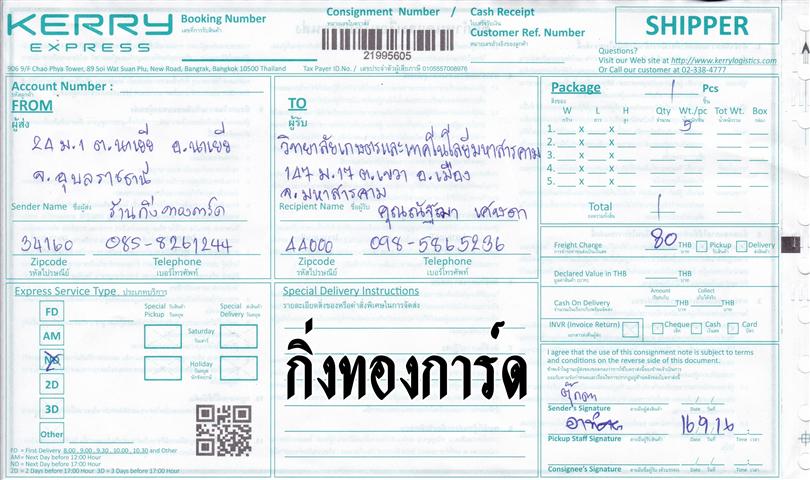 KERRY
EXPRESS
Booking Number
เลขที่การรับสินค้า
Consignment Number /
หมายเลขใบตราส่ง
21995605
Cash Receipt
ใบเสร็จรับเงิน
Customer Ref. Number
หมายเลขอ้างอิงของลูกค้า
SHIPPER
Questions?
Visit our Web site at http://www.kerrylogistics.com
Or Call our customer at 02-338-4777
906 9/F Chao Phya Tower, 89 Soi Wat Suan Plu, New Road, Bangrak, Bangkok 10500 Thailand
Tax Payer ID.No. / เลขประจำตัวผู้เสียภาษี 0105557006976
Account Number :
FROM
ผู้ส่ง
24 ม.1 ต.นาเยีย อ.นาเยีย
จ.อุบลราชธานี
Sender Name ชื่อผู้ส่ง ร้านกิ่งทองการ์ด
34160 085-8261244
Zipcode Telephone
รหัสไปรษณีย์ เบอร์โทรศัพท์
TO
ผู้รับ
วิทยาลัยเกษตรและเทคโนโลยีมหาสารคาม
147 ม.17 ต.เขวา อ.เมือง
จ.มหาสารคาม
Recipient Name ชื่อผู้รับ
44000 098-5865236
Zipcode Telephone
รหัสไปรษณีย์ เบอร์โทรศัพท์
Package 1 Pcs
สิ่งของ ชิ้น
W L H Qty Wt./pc Tot Wt. Box
กว้าง ยาว สูง จำนวน
1. x x 5
2. x x
3. x x
4. x x
5. x x
Total 1
Freight Charge 80 THB Pickup Delivery
Declared Value in THB THB
Amount Collect
Cash On Delivery THB
INVR (Invoice Return) Cheque Cash Card
เช็ค เงินสด บัตร
I agree that the use of this consignment note is subject to terms
and conditions on the reverse side of this document.
Sender's Signature Date วันที่
16 9 16
Pickup Staff Signature Date วันที่ Time เวลา
Consignee's Signature Date วันที่ Time เวลา
Express Service Type ประเภทบริการ
Special Pickup รับสินค้า วันหยุด
Special Delivery ส่งสินค้า วันหยุด
FD
AM
ND
2D
3D
Other
Saturday
วันเสาร์
Holiday
FD = First Delivery 8.00 , 9.00 , 9.30 , 10.00 , 10.30 and Other
AM = Next Day before 12:00 Hour
ND = Next Day before 17:00 Hour
2D = 2 Days before 17:00 Hour 3D = 3 Days before 17:00 Hour
Special Delivery Instructions
รายละเอียดสิ่งของหรือคำสั่งพิเศษในการจัดส่ง
กิ่งทองการ์ด